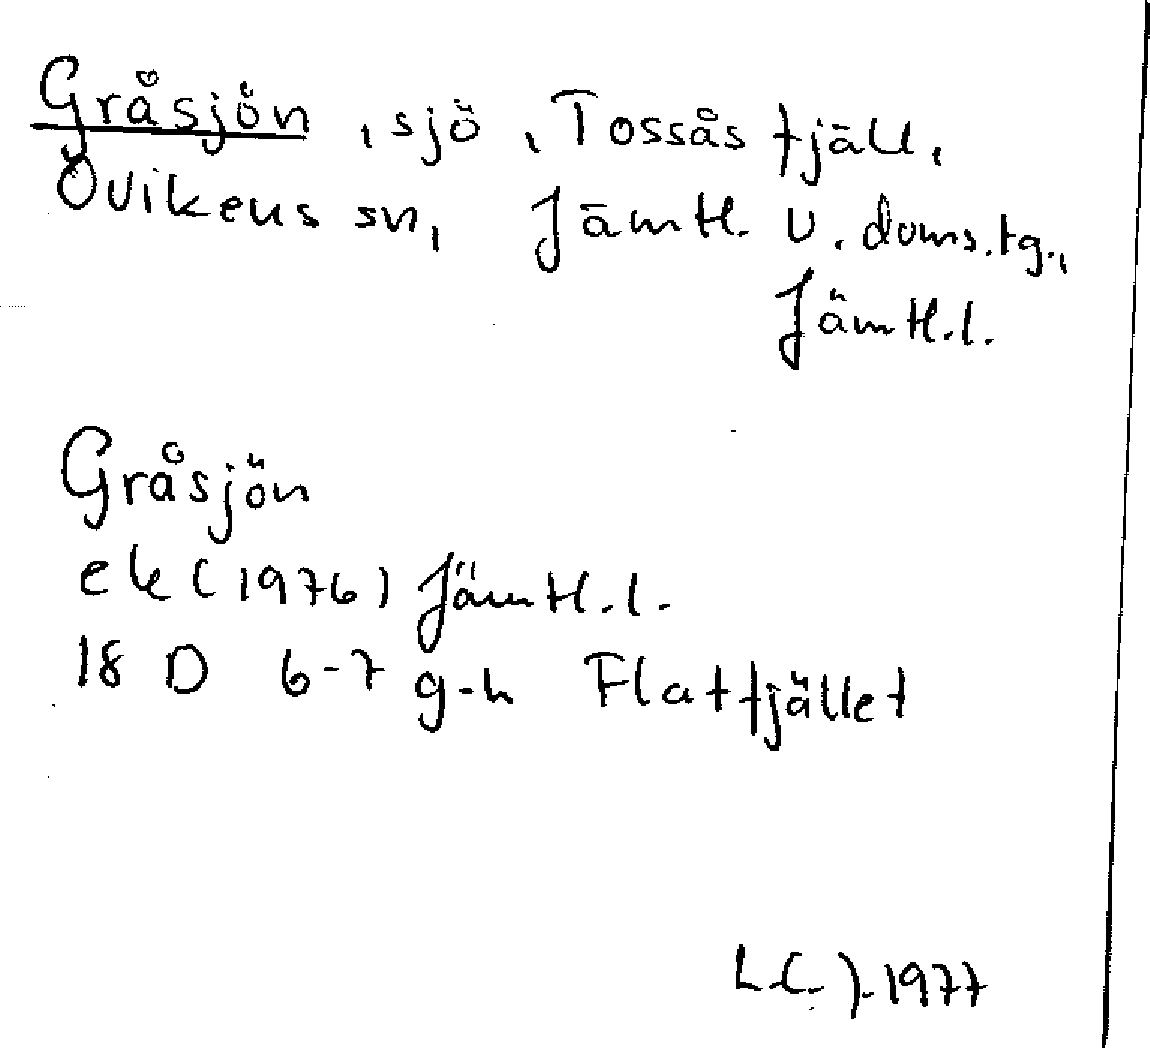 Gråsjön, sjö, Tossås fjäll,
Ovikens sn, Jämtl. v. doms.tg.,
Jämtl.l.
Gråsjön
ek (1976) Jämtl.l.
18 D 6-7 g-h Flatfjället
L.C. J. 1977